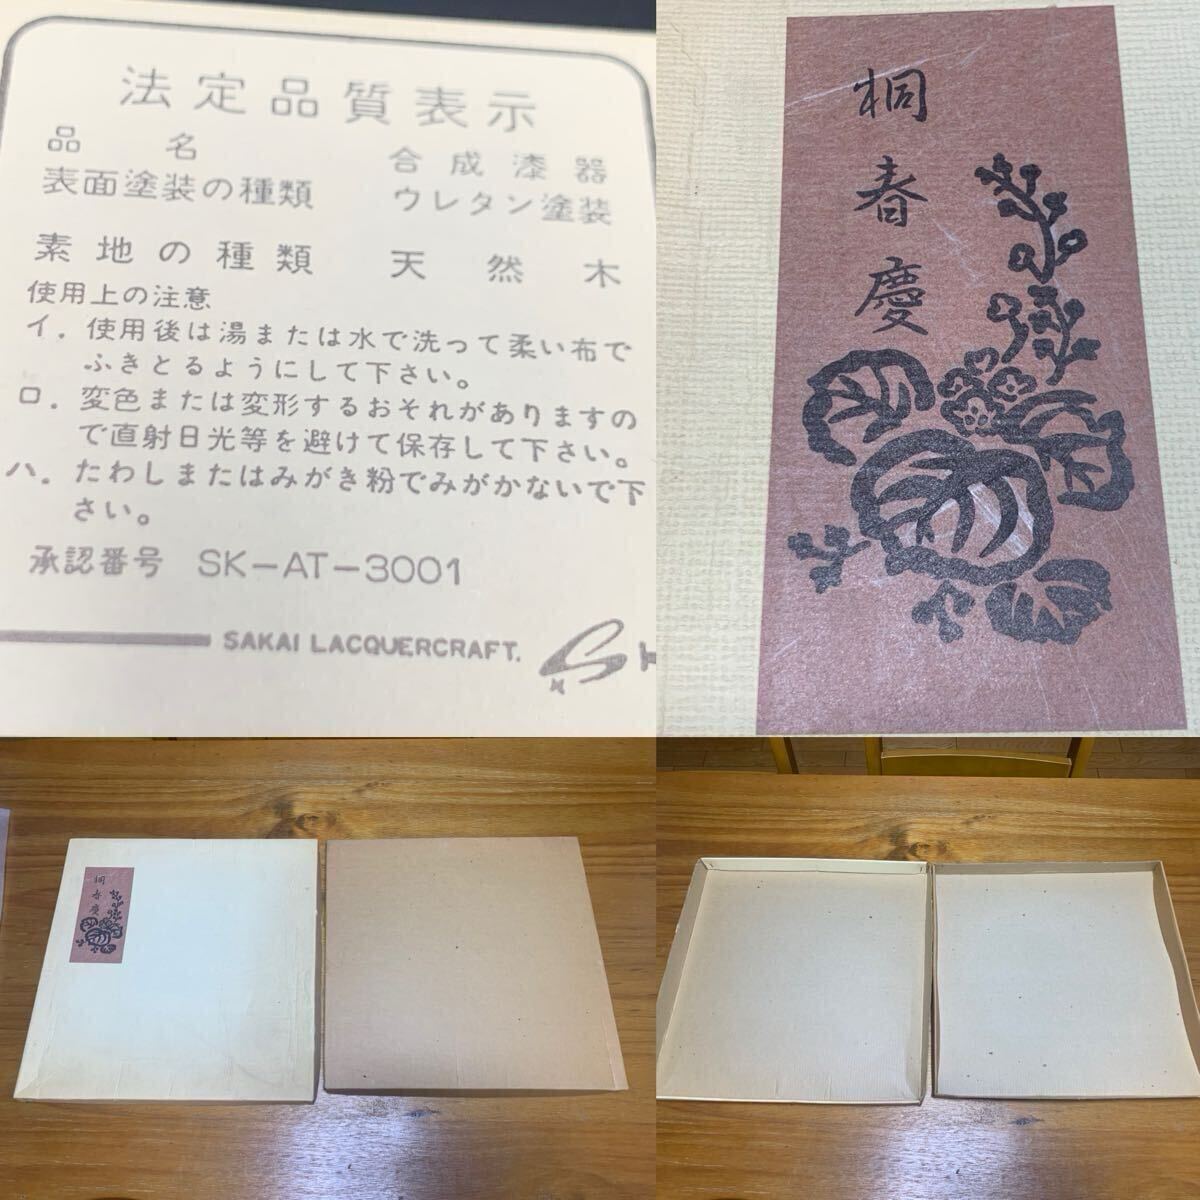 法定品質表示
品名 合成漆器
表面塗装の種類 ウレタン塗装
素地の種類 天然木
使用上の注意
イ．使用後は湯または水で洗って柔い布で
ふきとるようにして下さい。
ロ．変色または変形するおそれがありますの
で直射日光等を避けて保存して下さい。
ハ．たわしまたはみがき粉でみがかないで下
さい。
承認番号 SK-AT-3001
SAKAI LACQUERCRAFT.
桐春慶
桐春慶